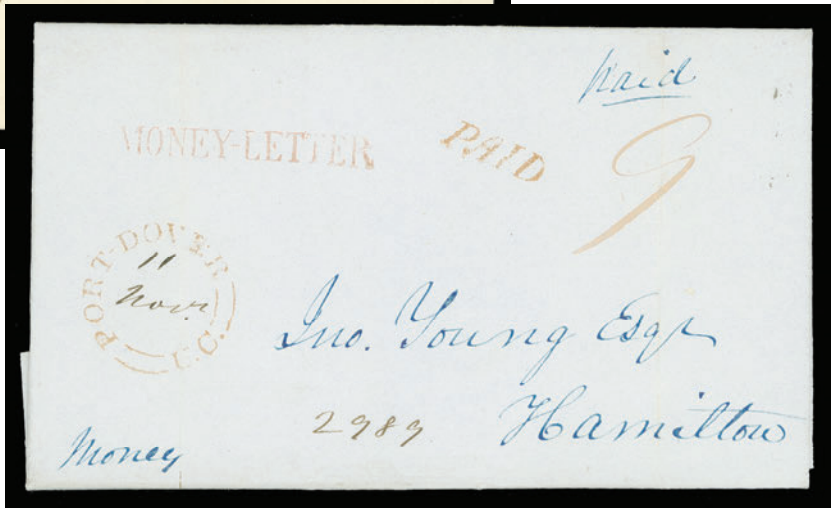 Paid
MONEY-LETTER PAID 9
PORT-DOVER
11
Novr.
U.C.
Jno. Young Esqr
Hamilton
2989
Money